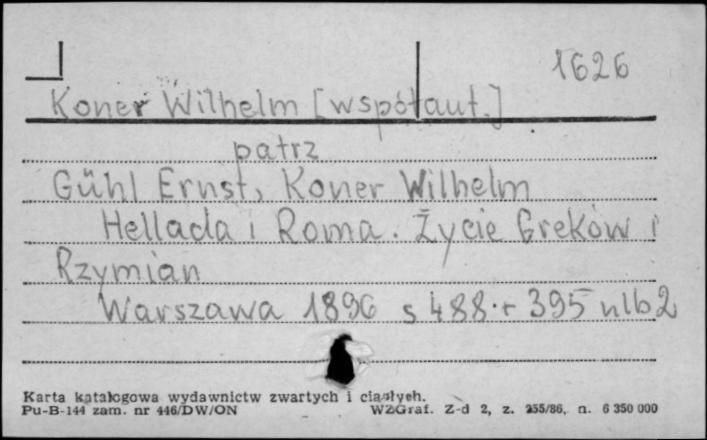 1626
Koner Wilhelm [współaut.]
patrz
Gühl Ernst, Koner Wilhelm
Hellada i Roma. Życie Greków i
Rzymian
Warszawa 1896 s 488 + 395 nlb 2
Karta katalogowa wydawnictw zwartych i ciągłych.
Pu-B-144 zam. nr 446/DW/ON WZGraf. Z-d 2, z. 255/86, n. 6 350 000